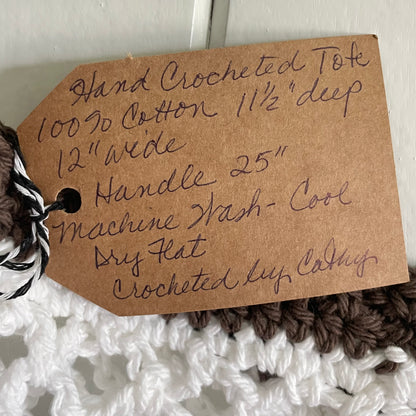 Hand Crocheted Tote
100% Cotton 11½" deep
12" wide
Handle 25"
Machine Wash - Cool
Dry Flat
Crocheted by Cathy